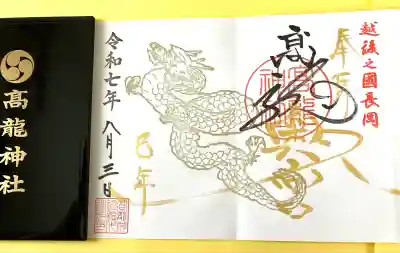 越後之國長岡
奉拝
高龍
高龍神社
巳年
令和七年八月三日
高龍神社